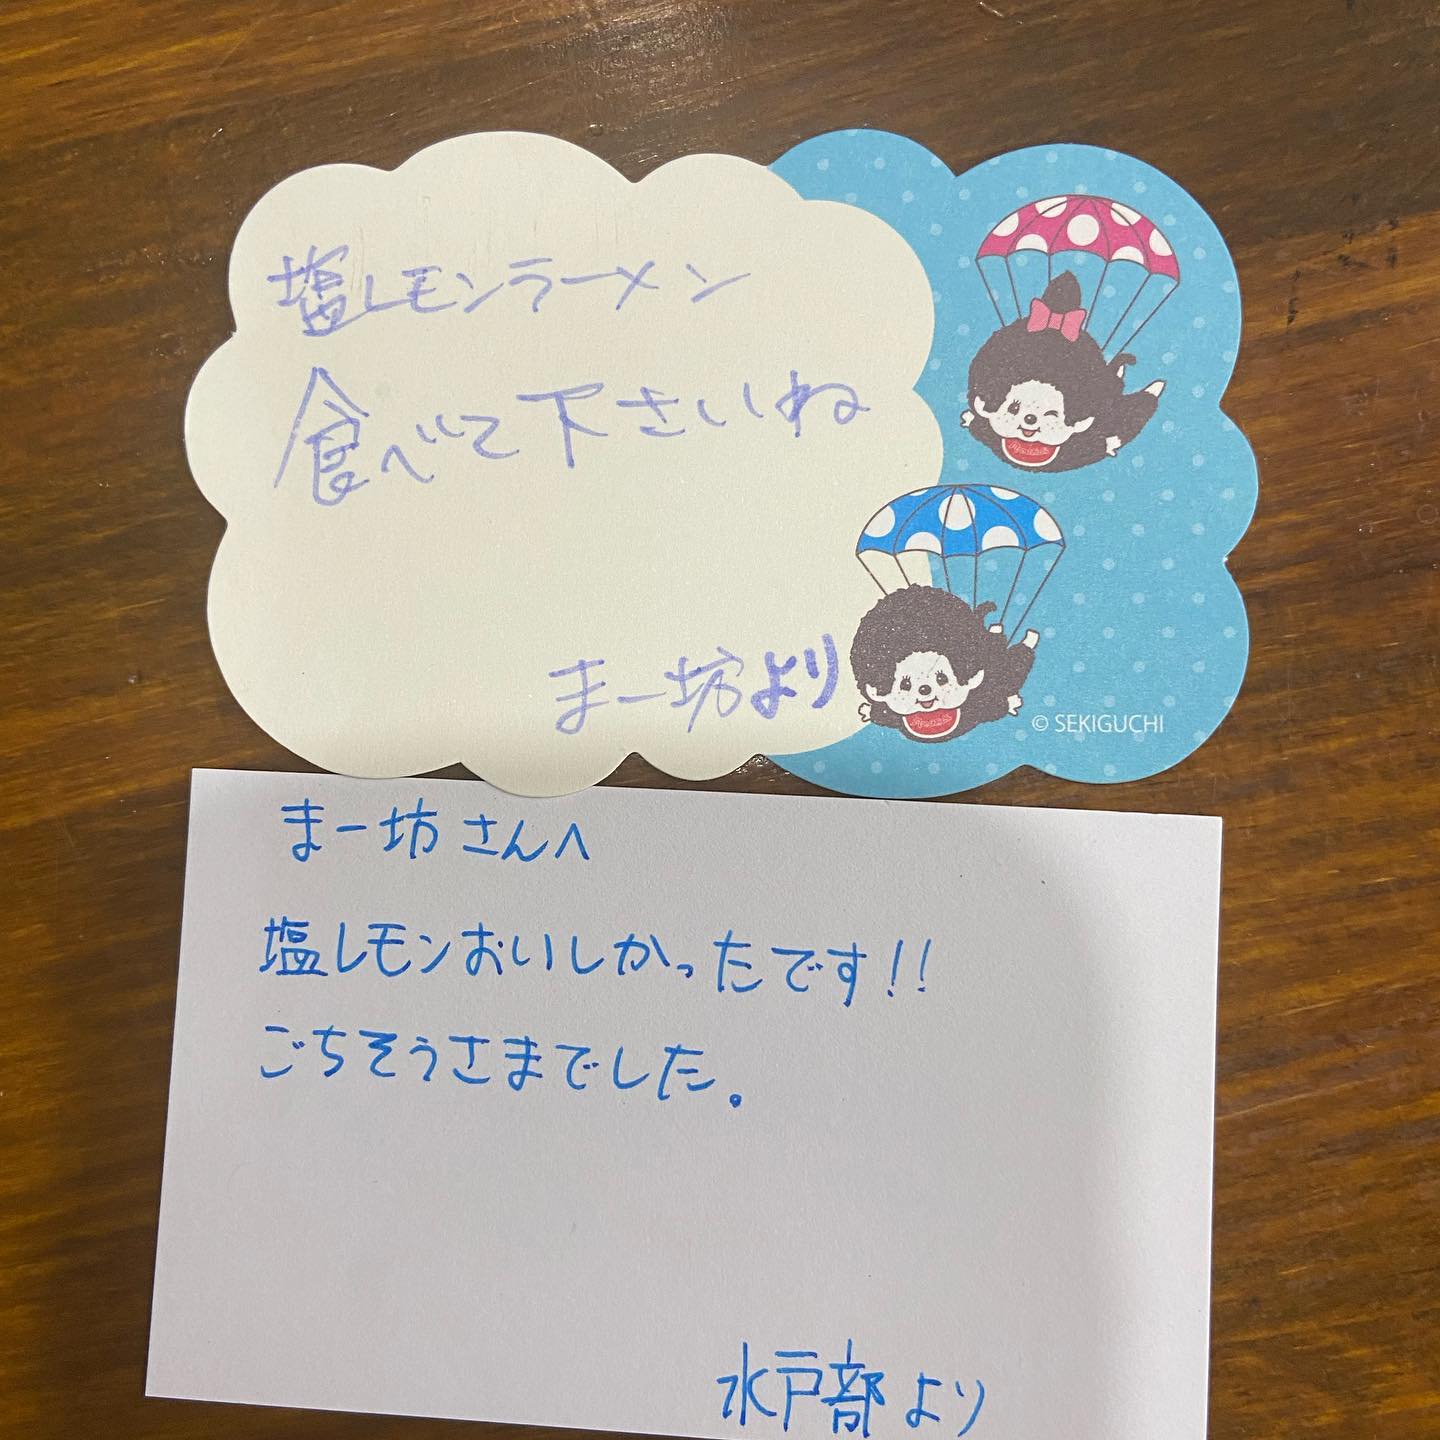 塩レモンラーメン
食べて下さいね
まー坊より
© SEKIGUCHI
まー坊さんへ
塩レモンおいしかったです!!
ごちそうさまでした。
水戸部より